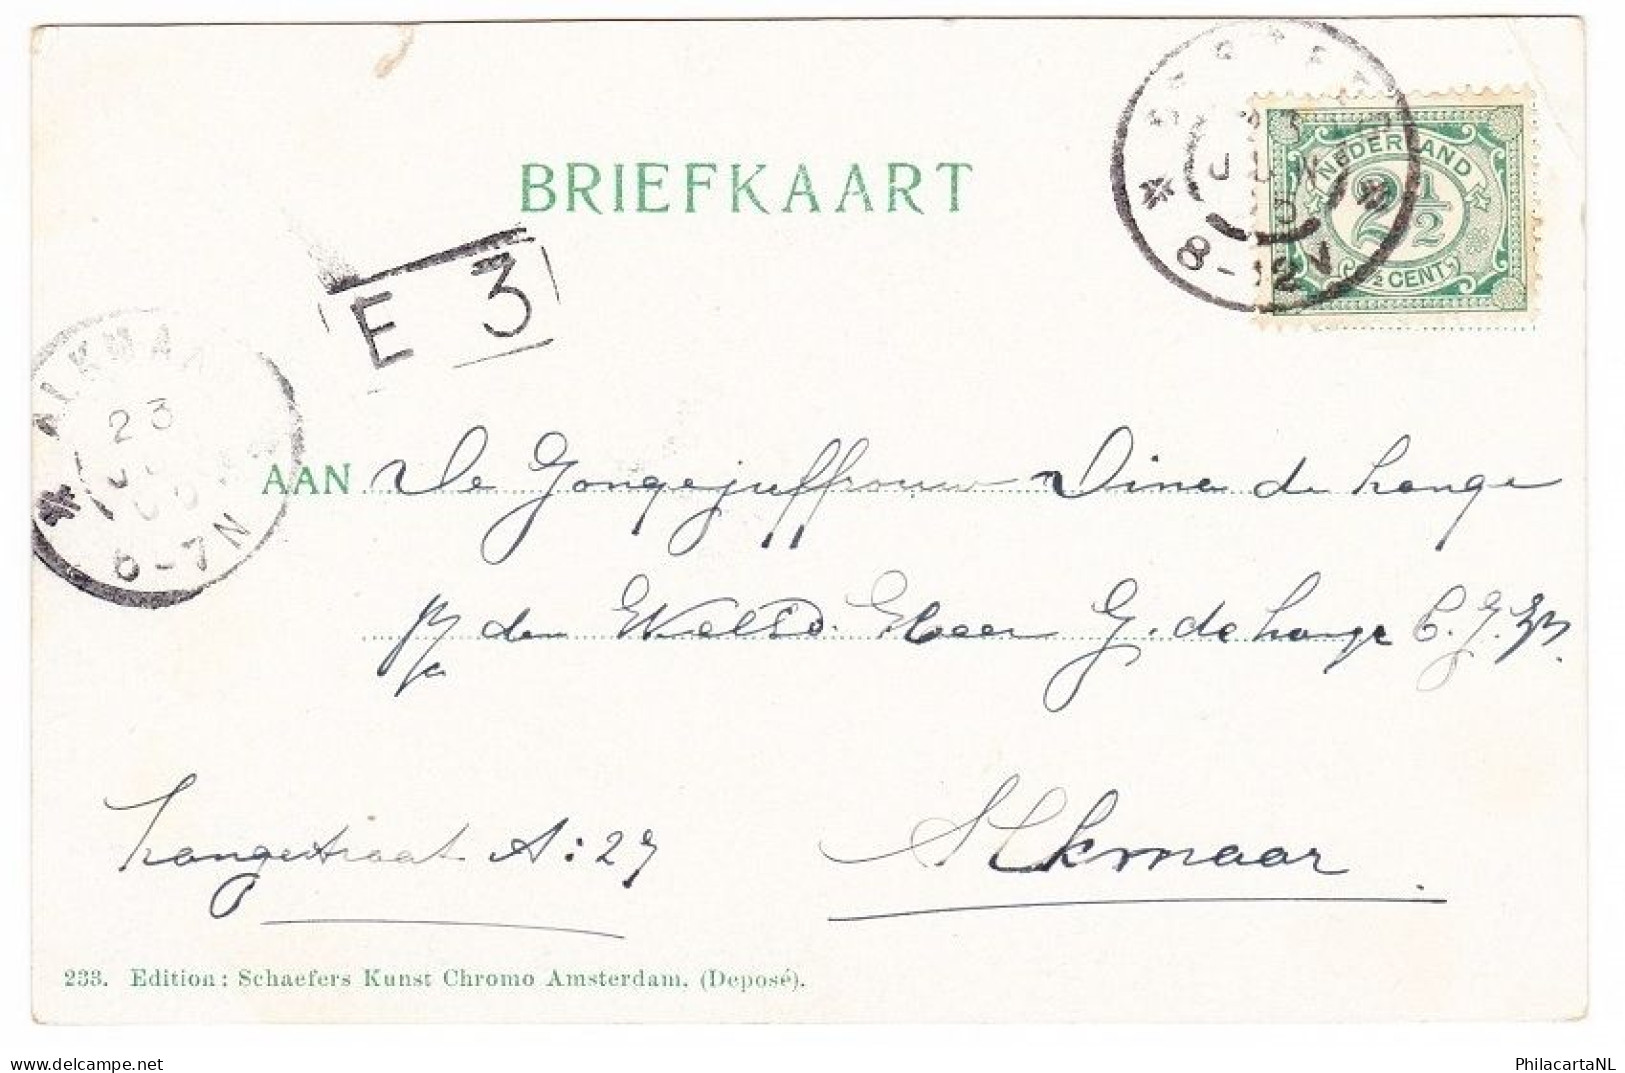 BRIEFKAART
NEDERLAND
2½
2½ CENT
8-12V
E 3
ALKMAAR
23
6-7N
AAN De Jongejuffrouw Dina de Lange
p/a den WelEd. Heer G. de Lange C.J.Zn.
Langestraat A: 27
Alkmaar.
233. Edition: Schaefers Kunst Chromo Amsterdam. (Deposé).
PhilacartaNL
www.delcampe.net